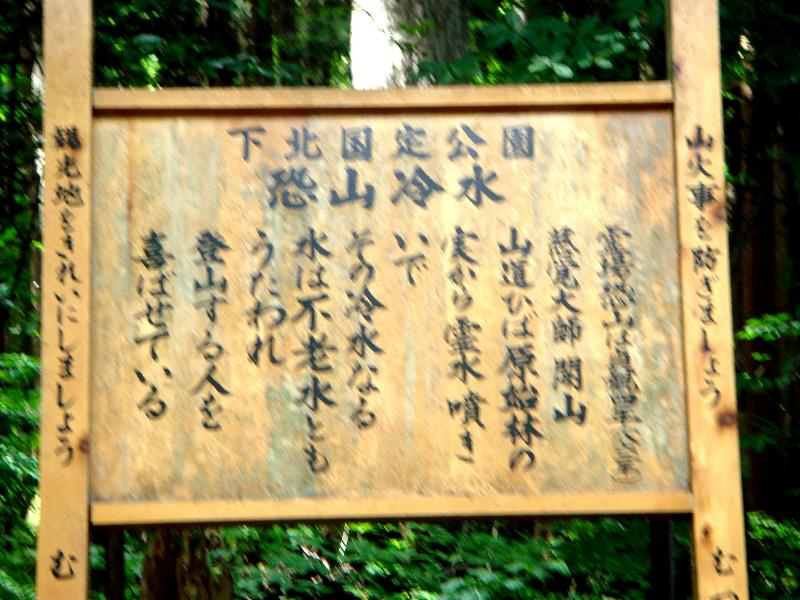 下北国定公園
恐山冷水
霊場恐山は貞観四年
慈覚大師開山
山道ひば原始林の
実から霊水噴き
いで
その冷水なる
水は不老水とも
うたわれ
登山する人を
喜ばせている
山火事を防ぎましょう
む
観光地をきれいにしましょう
む